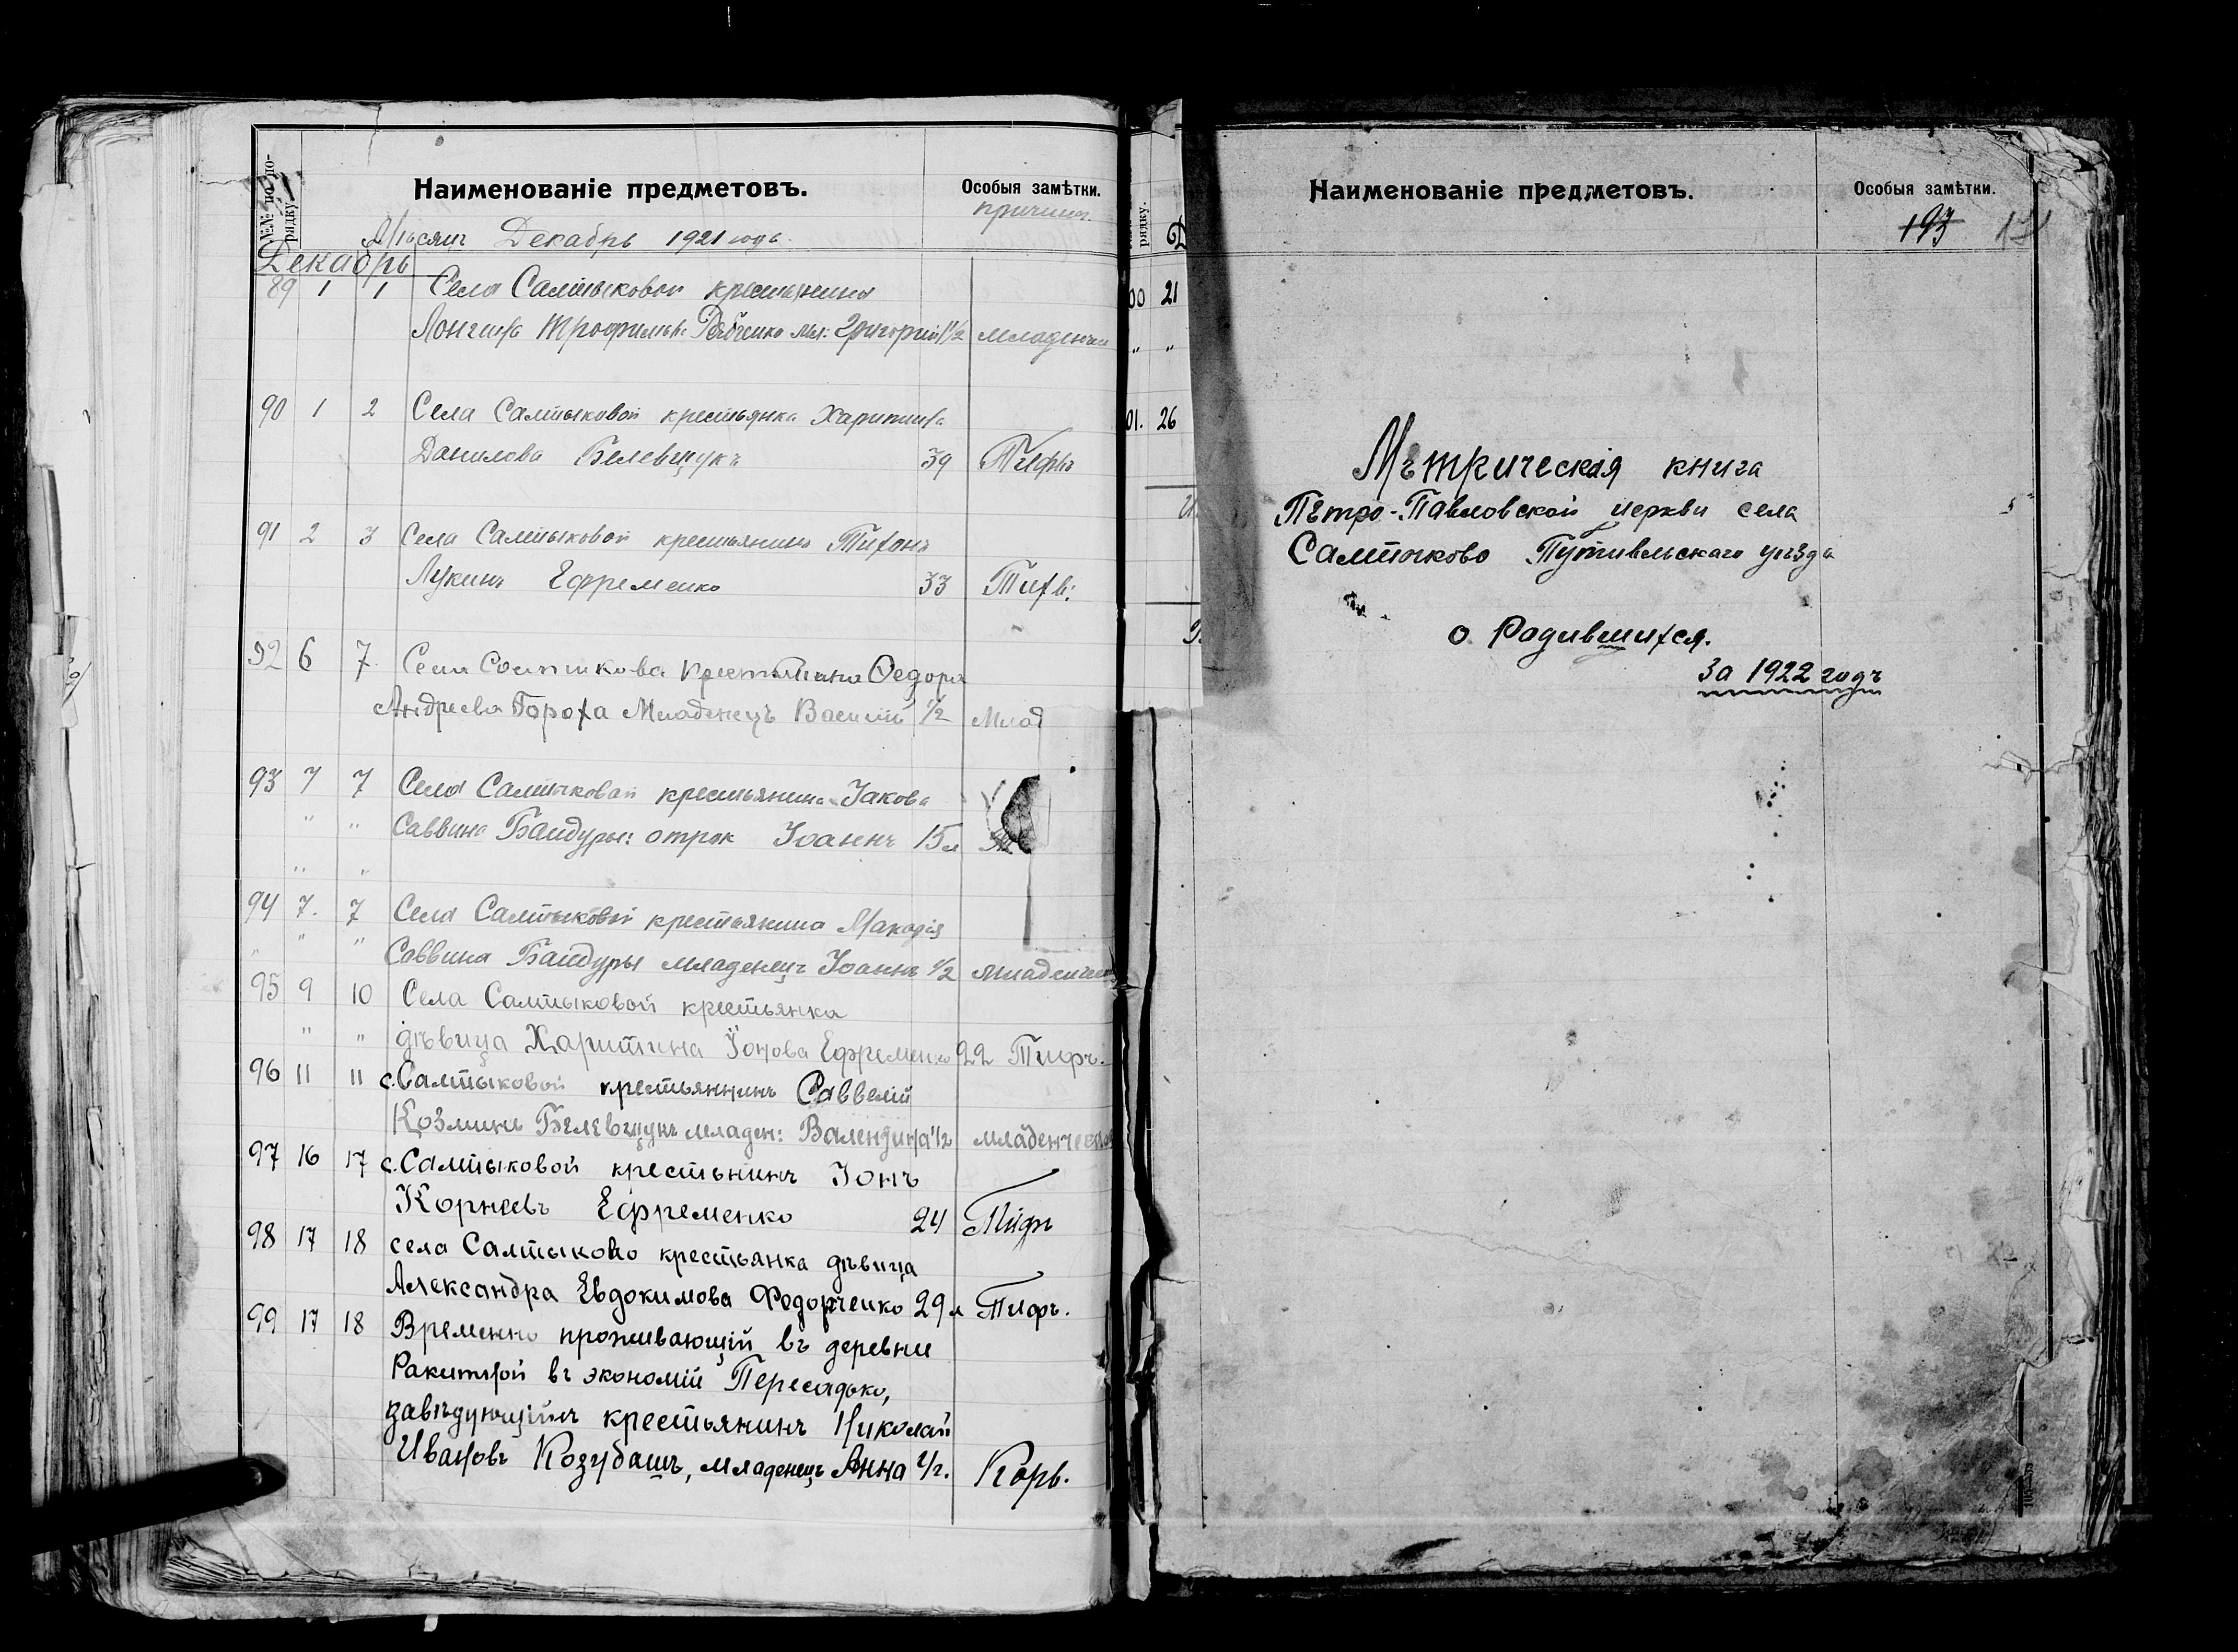 №№ по по-
рядку.
Наименованіе предметовъ.
Особыя замѣтки.
причина.
Мѣсяцъ Декабрь 1921 годъ.
Декабрь
89 1 1 Села Салтыковой крестьянина
Лонгина Трофимова Рябченко мл: Григорій 1/2 младенчес
90 1 2 Села Салтыковой крестьянка Харитина
Данилова Белевщукъ 39 Тифъ
91 2 3 Села Салтыковой крестьянинъ Тихонъ
Лукинъ Ефременко 33 Тифъ:
92 6 7 Села Солтикова Крестянина Ѳедора
Андреева Гороха Младенецъ Василий 1/2 Млад
93 7 7 Села Салтыковой крестьянина Іакова
" " Саввина Бандуры: отрок Іоаннъ 15л
" "
94 7. 7 Села Салтыковой крестьянина
" " " Саввина Бандуры младенецъ Іоаннъ 1/2 младенчес
95 9 10 Села Салтыковой крестьянка
" " дѣвица Харитина Іонова Ефременко 22 Тифъ.
96 11 11 с. Салтыковой крестьяннинъ Саввелій
Козминъ Белевщукъ младен: Валендина 1/2 младенческ
97 16 17 с. Салтыковой крестьнинъ Іонъ
Корнеевъ Ефременко 24 Тифъ
98 17 18 села Салтыково крестьянка дѣвица
Александра Евдокимова Федорченко 29л Тифъ.
99 17 18 Временно проживающій въ деревни
Ракитной въ экономіи Пересадько,
завѣдующійъ крестьянинъ Николай
Ивановъ Козубашъ, младенецъ Анна 1/2. Корь.
рядку.
00 21
" "
01. 26
Наименованіе предметовъ.
Особыя замѣтки.
193
Мѣтрическія книга
Пѣтро-Павловской церкви села
Салтыково Путивльскаго уѣзда
о Родившихся.
За 1922 годъ